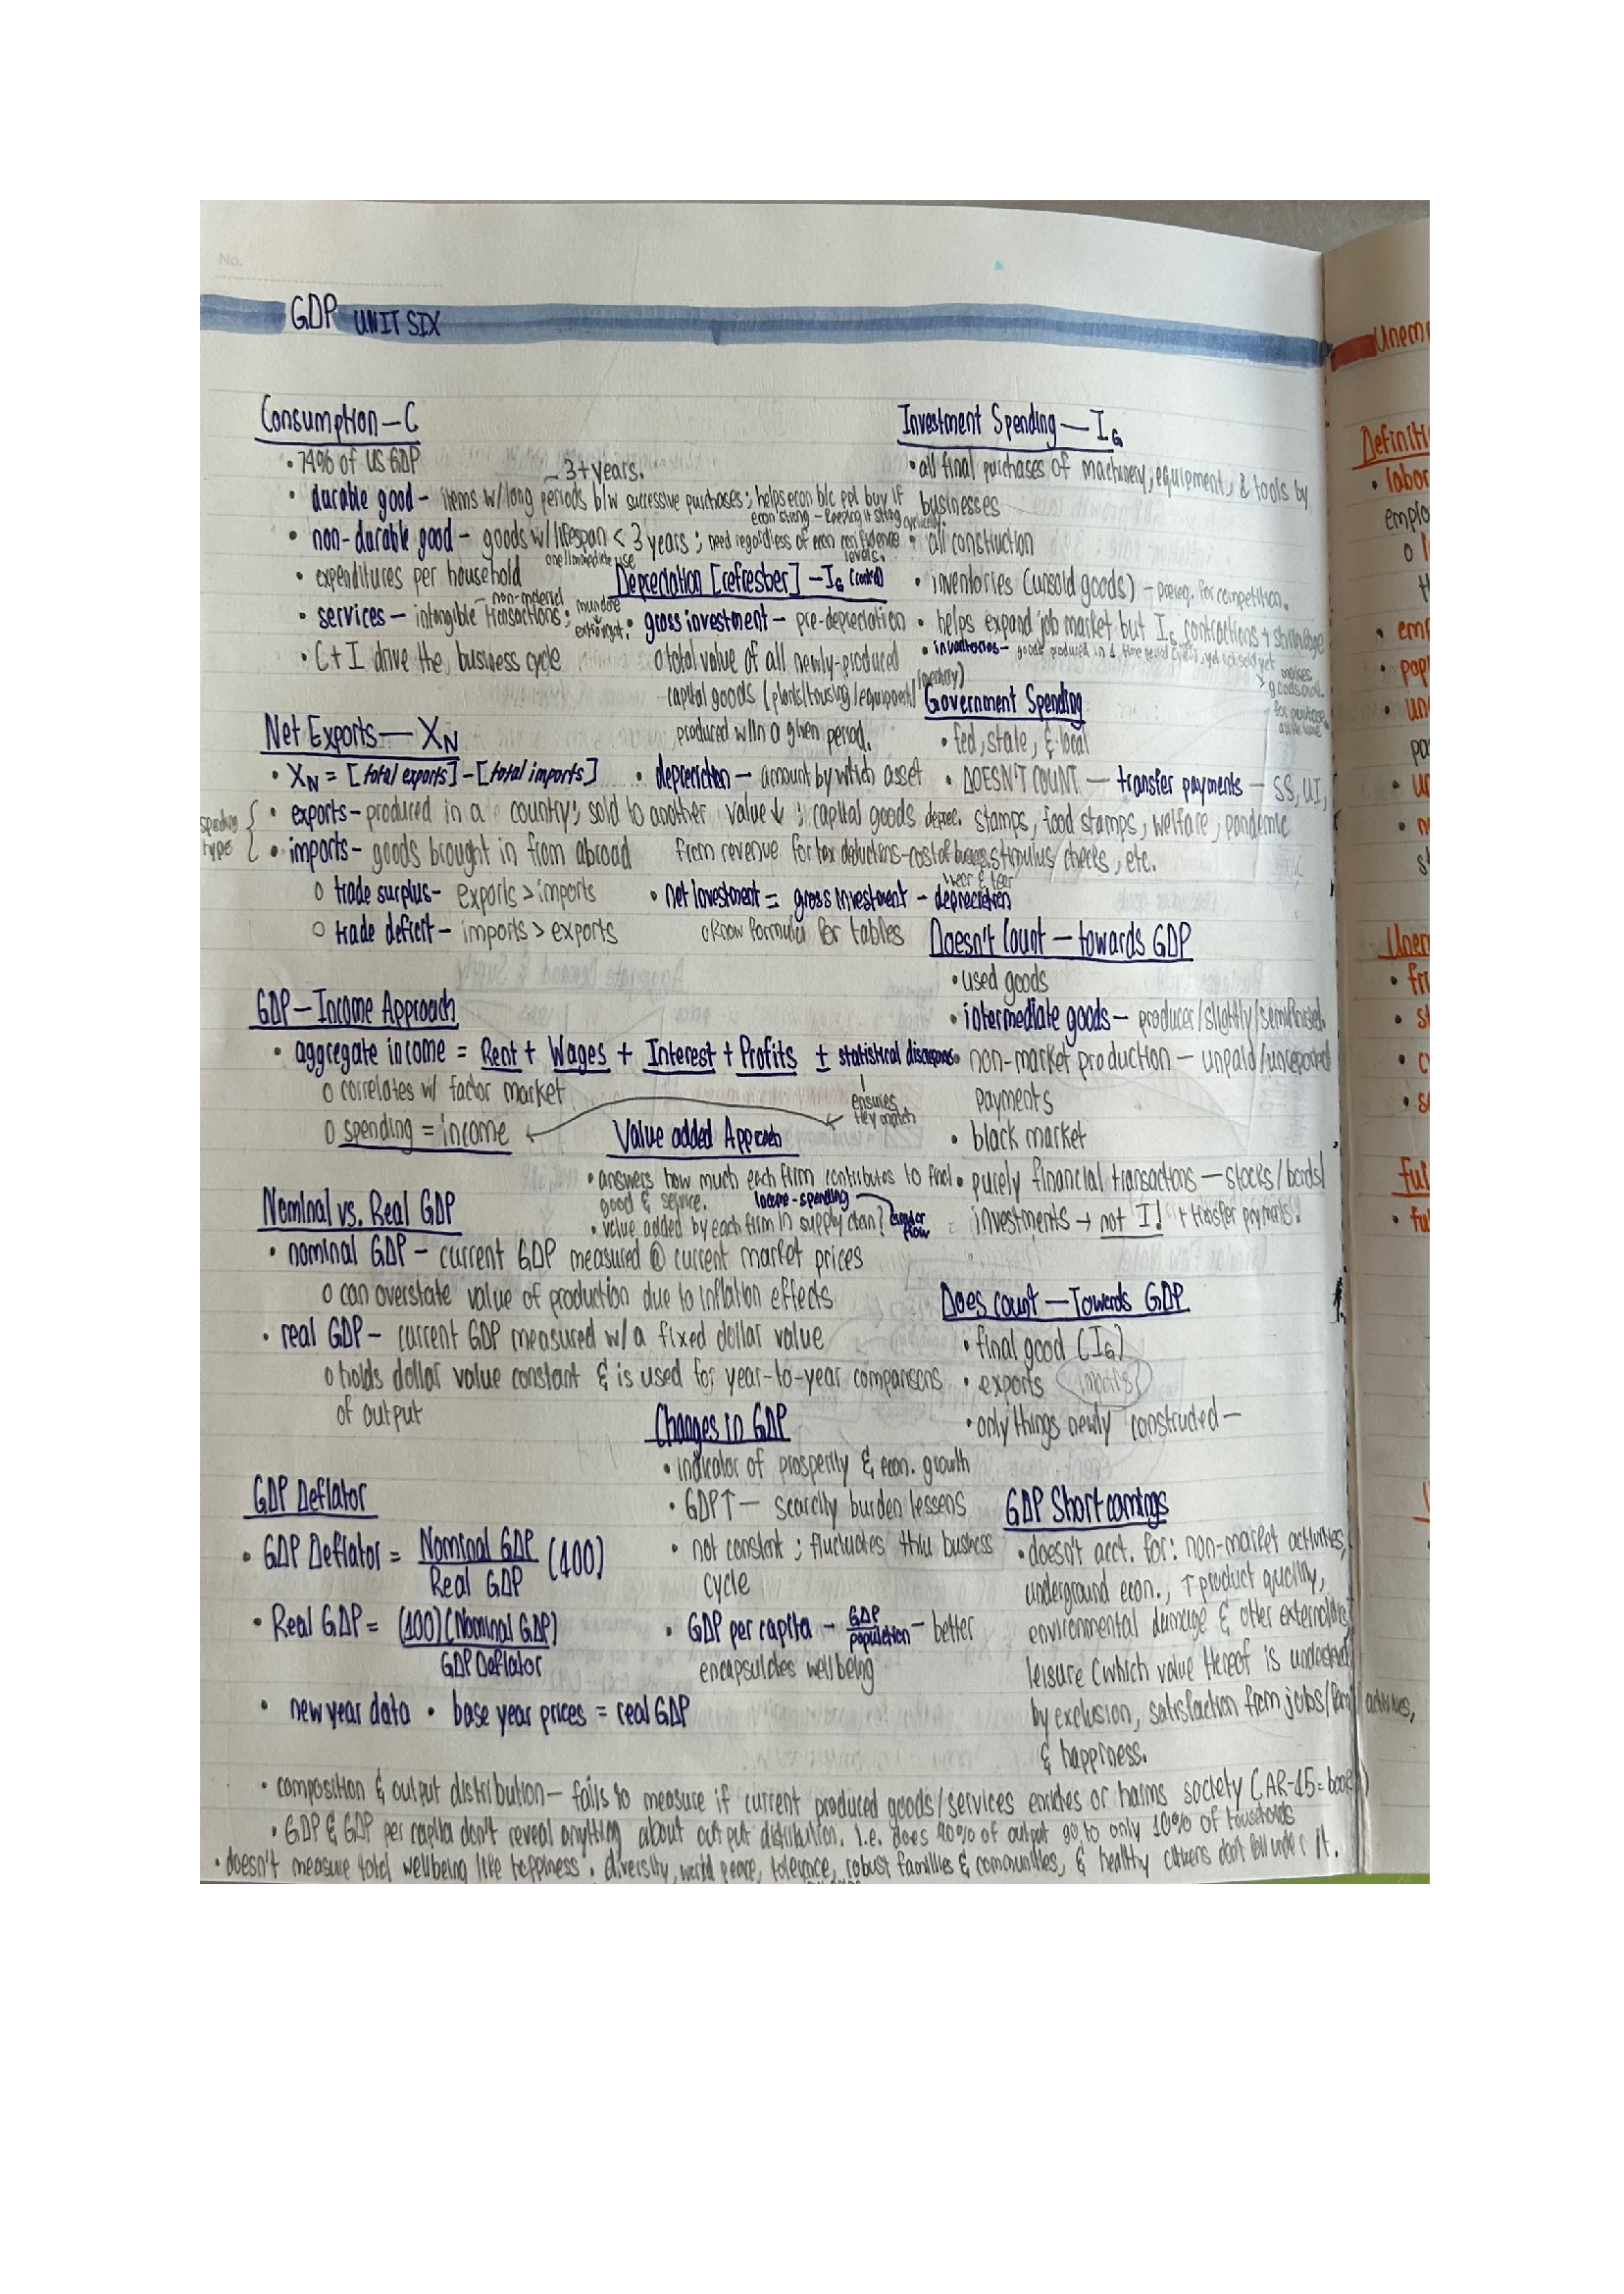 No.
GDP UNIT SIX
Consumption — C
• 74% of US GDP
~ 3+ years.
• durable good – items w/ long periods b/w successive purchases; helps econ b/c ppl buy if
econ strong – keeping it strong cyclically.
• non-durable good – goods w/ lifespan < 3 years; need regardless of econ confidence
levels.
one/immediate use
• expenditures per household
– non-material
• services – intangible transactions; mundane
extravagt.
• C + I drive the business cycle
Investment Spending — IG
• all final purchases of machinery, equipment, & tools by
businesses
• all construction
• inventories (unsold goods) – prereq. for competition.
• helps expand job market but IG contractions → shrinkage
• inventories – goods produced in 1 time period, yet not sold yet
makes
goods avail.
for purchase
Depreciation [refresher] – IG (cont'd)
• gross investment – pre-depreciation
o total value of all newly-produced
capital goods (plants/housing/equipment/
produced w/in a given period.
• depreciation – amount by which asset
value ↓; capital goods deprec.
from revenue for tax deductions–cost of business
wear & tear
• net investment = gross investment – depreciation
o Know formula for tables
Government Spending
• fed, state, & local
• DOESN'T COUNT — transfer payments – SS, UI,
stamps, food stamps, welfare, pandemic
stimulus checks, etc.
Net Exports — XN
• XN = [total exports] – [total imports]
spending
types
• exports – produced in a country; sold to another
• imports – goods brought in from abroad
o trade surplus – exports > imports
o trade deficit – imports > exports
Doesn't Count — towards GDP
• used goods
• intermediate goods – producer/slightly/semifinished.
• non-market production – unpaid/unreported
payments
• black market
• purely financial transactions — stocks/bonds/
investments → not I! + transfer paymnts!
GDP – Income Approach
• aggregate income = Rent + Wages + Interest + Profits ± statistical discrepns
o correlates w/ factor market
o spending = income
ensures
they match
Value added Approach
• answers how much each firm contributes to final
good & service.
income-spending
• value added by each firm in supply chain?
circular
flow
Nominal vs. Real GDP
• nominal GDP – current GDP measured @ current market prices
o can overstate value of production due to inflation effects
• real GDP – current GDP measured w/ a fixed dollar value
o holds dollar value constant & is used for year-to-year comparisons
of output
Does count — Towards GDP
• final good (IG)
• exports
• only things newly constructed –
Changes in GDP
• indicator of prosperity & econ. growth
• GDP ↑ — scarcity burden lessens
• not constant; fluctuates thru business
cycle
• GDP per capita – GDP/population – better
encapsulates wellbeing
GDP Deflator
• GDP Deflator = Nominal GDP/Real GDP (100)
• Real GDP = (100)(Nominal GDP)/GDP Deflator
• new year data • base year prices = real GDP
GDP Shortcomings
• doesn't acct. for: non-market activities,
underground econ., ↑ product quality,
environmental damage & other externalities
leisure (which value thereof is understated
by exclusion, satisfaction from jobs/ activities,
& happiness.
• composition & output distribution — fails to measure if current produced goods/services enriches or harms society (AR-15 = book)
• GDP & GDP per capita don't reveal anything about output distribution. i.e. does 90% of output go to only 10% of households
• doesn't measure total wellbeing like happiness. diversity, world peace, tolerance, robust families & communities, & healthy citizens don't fall under it.
Unem
Definiti
• labor
emplo
• emp
• pop
• un
Unem
• fri
• st
• c
• se
full
• fu